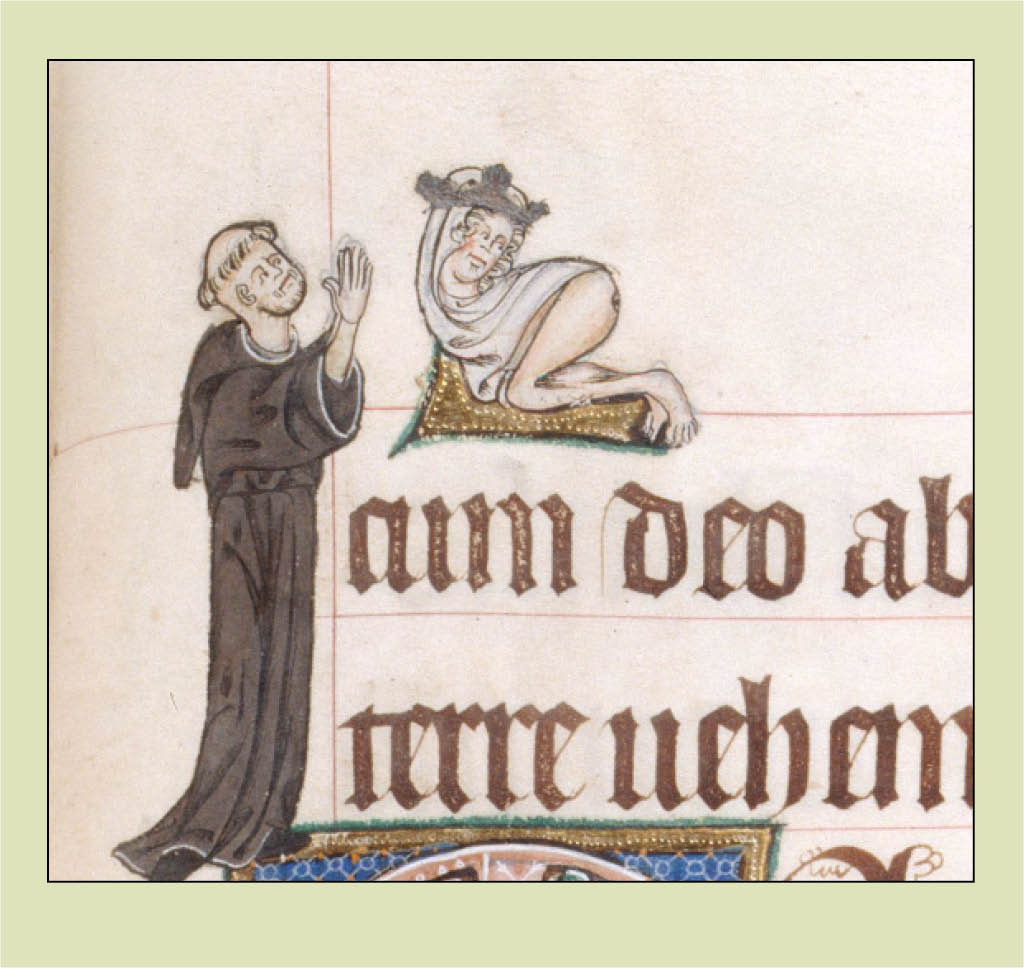 cum deo ab
terre uehem